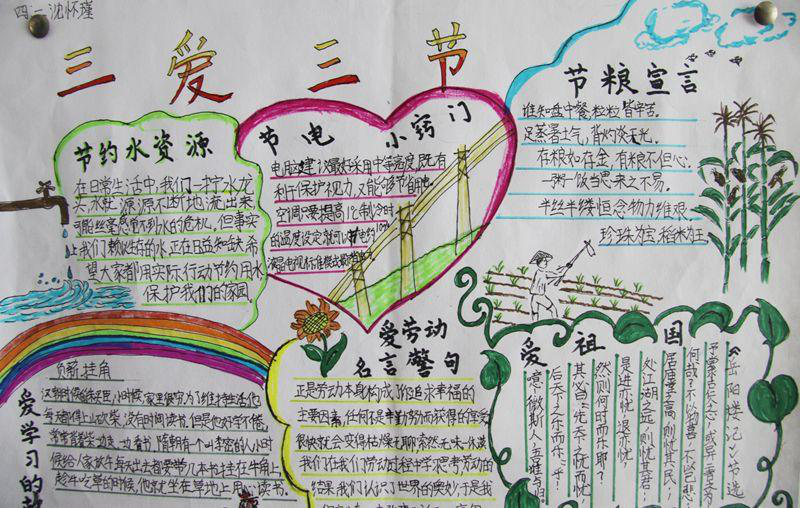 四一 沈怀瑾
三爱三节
节约水资源
在日常生活中,我们一拧水龙
头,水就源源不断地流出来
可能丝毫感觉不到水的危机。但事实
上我们赖以生存的水正在日益短缺,希
望大家都用实际行动节约用水
保护我们的家园。
节电小窍门
电脑建议最好采用中等亮度,既有
利于保护视力,又能够节省电
空调不要提高
的温度设定就可以
节粮宣言
谁知盘中餐,粒粒皆辛苦。
足蒸暑土气,背灼炎天光。
存粮如存金,有粮不担心。
一粥一饭当思来之不易。
半丝半缕恒念物力维艰
珍珠为宝,稻米为王。
负薪挂角
爱学习的故
汉朝时候
每天都得上山砍柴,没有时间读书,但是他好学不倦,
常常背着柴,边走一边看书,隋朝有个叫李密的人小时
候给人家放牛每天出去都要带几本书挂在牛角上
趁牛吃草的时候,他就坐在草地上用心读书。
爱劳动
名言警句
正是劳动本身构成了你追求幸福的
主要因素,任何不是辛勤劳动而获得的享受
很快就会变得枯燥无聊索然无味—休谟
我们在劳动过程中学习思考劳动的
结果,我们认识了世界的奥妙,于是我
爱祖国
《岳阳楼记》节选
予尝求古仁人之心,或异二者之为
何哉?不以物喜,不以己悲;
居庙堂之高,则忧其民;
处江湖之远,则忧其君;
是进亦忧,退亦忧;
然则何时而乐耶?
其必曰先天下之忧而忧,
后天下之乐而乐乎!
噫!微斯人,吾谁与归